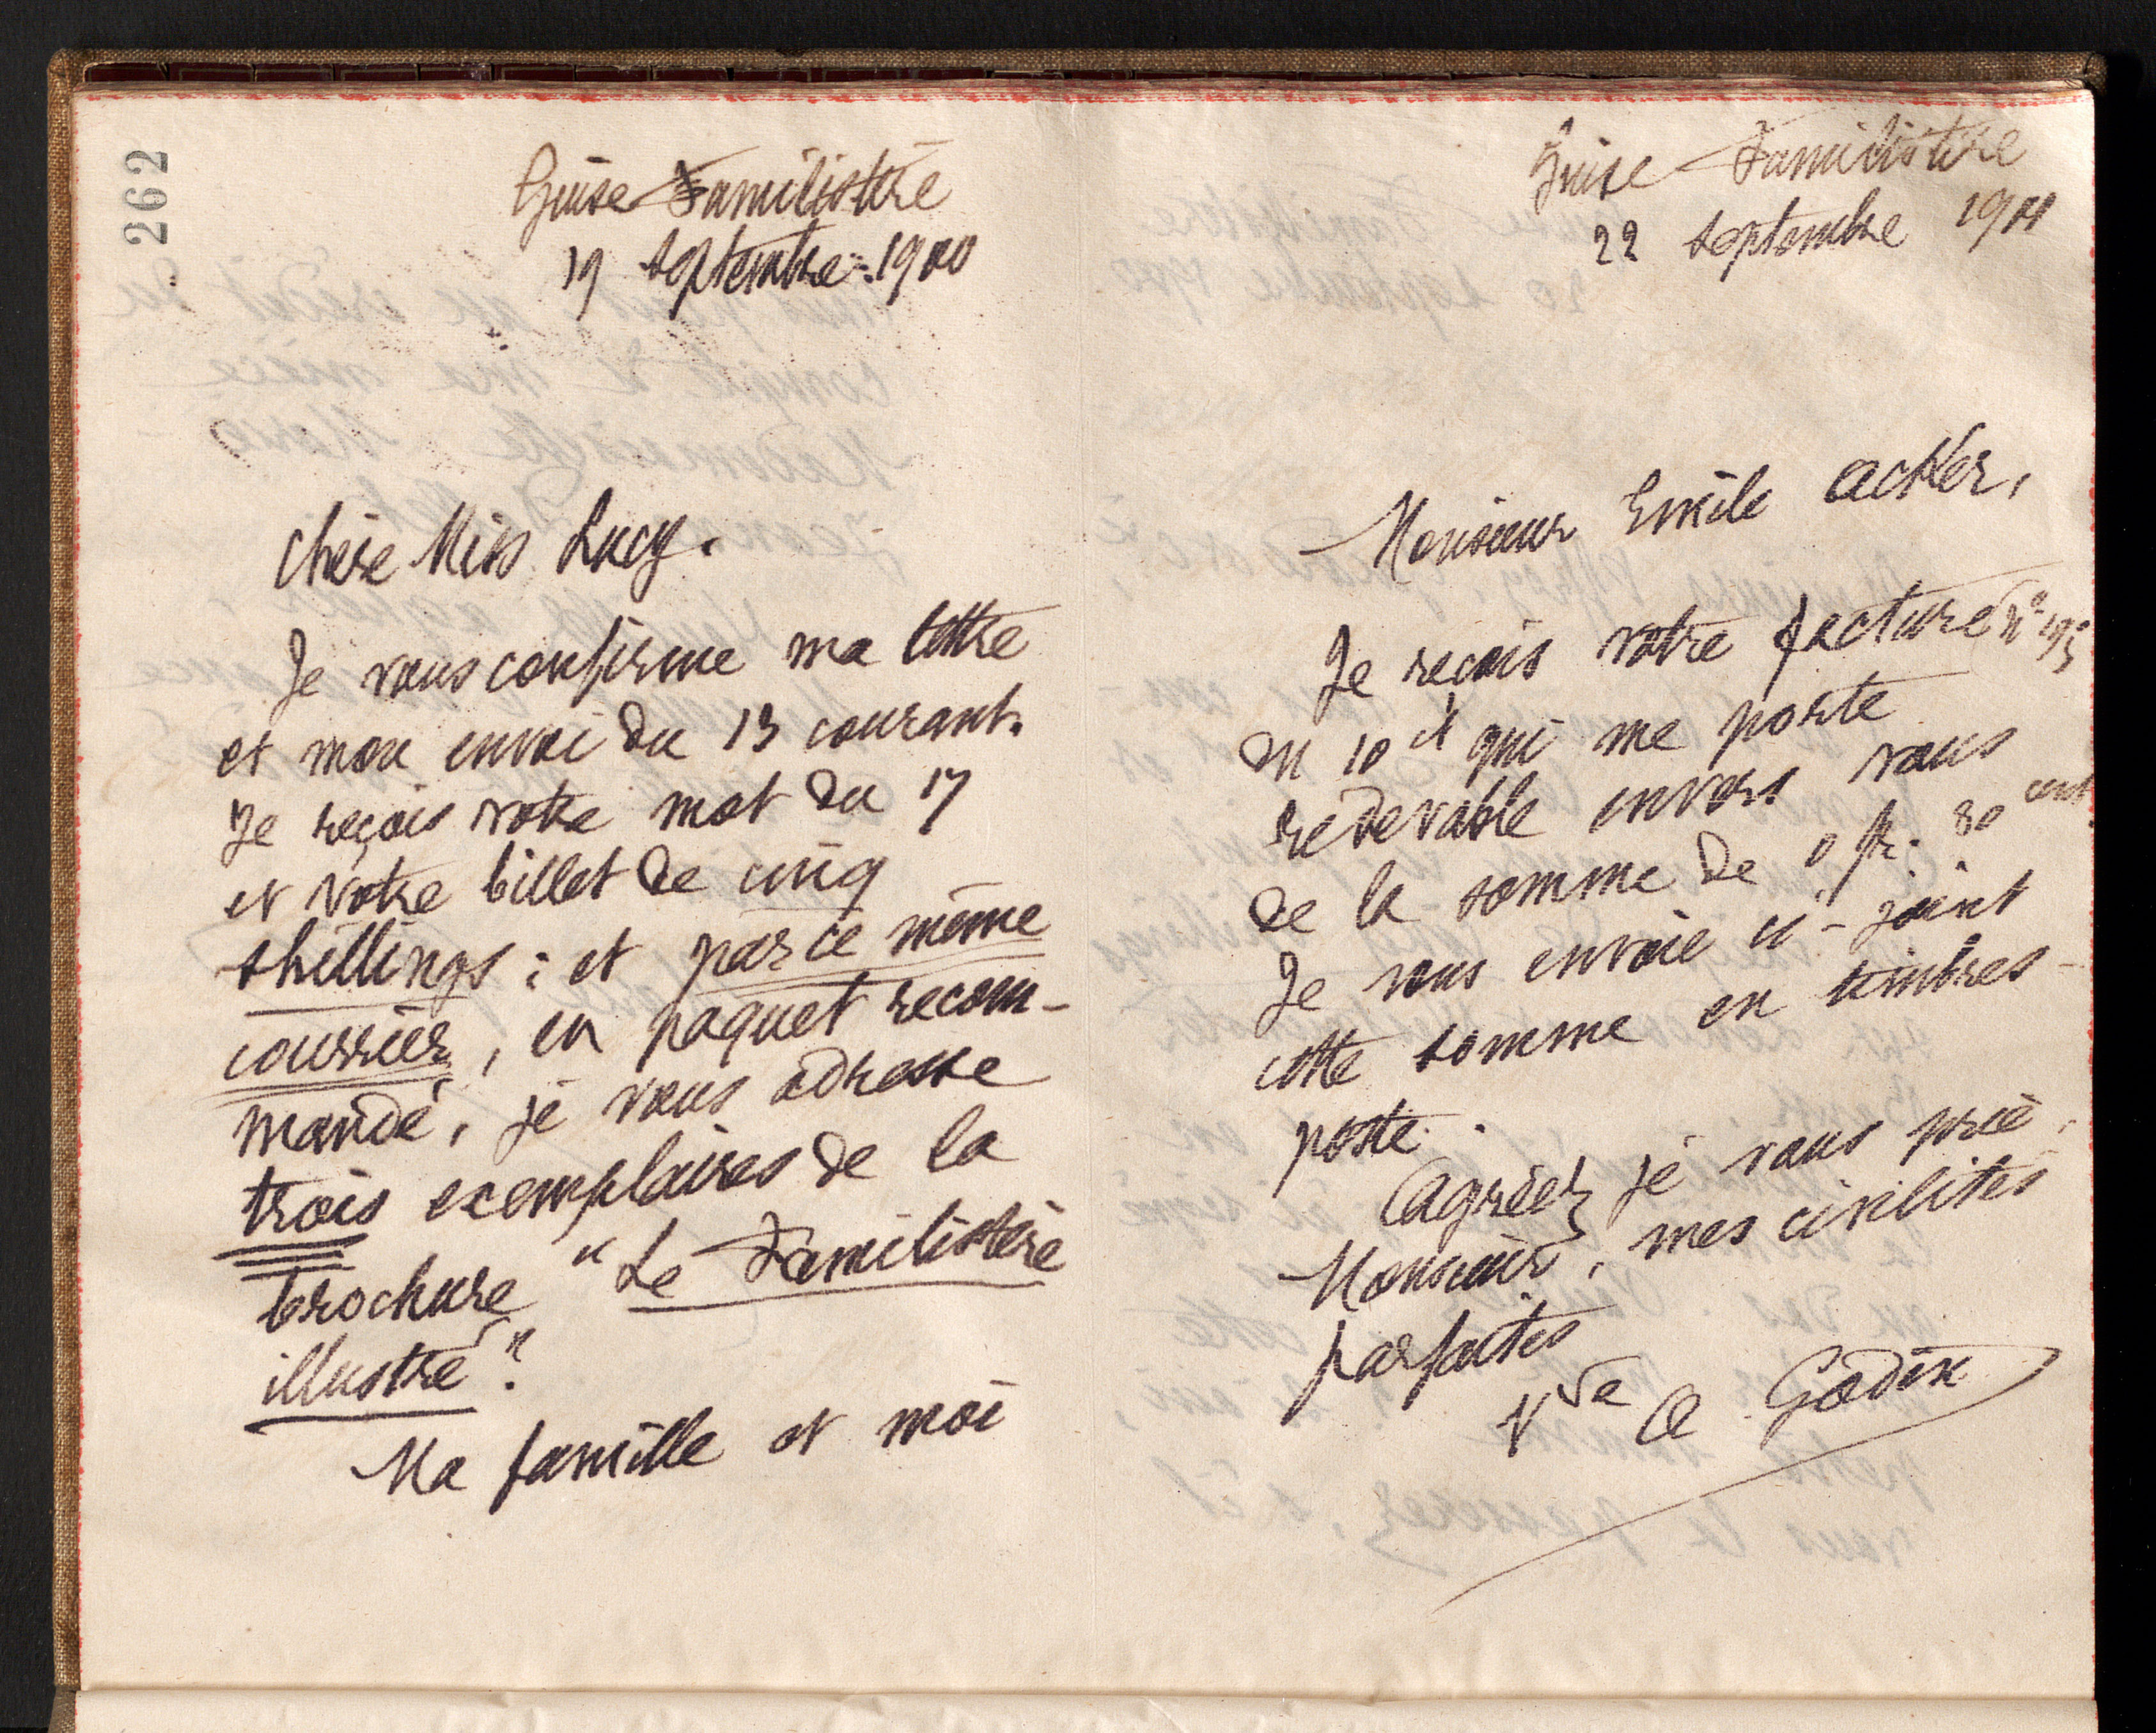 262
Guise Familistère
19 septembre 1900
Chère Miss Lucy.
Je vous confirme ma lettre
et mon envoi du 13 courant.
Je reçois votre mot du 17
et votre billet de cinq
shillings ; et par ce même
courrier, en paquet recom-
mandé, je vous adresse
trois exemplaires de la
brochure "Le Familistère
illustré".
Ma famille et moi
Guise Familistère
22 septembre 1900
Monsieur Emile Acker,
Je reçois votre facture n°
du 10 ct qui me porte
redevable envers vous
de la somme de 0 fr. 80 cent.
Je vous envoie ci-joint
cette somme en timbres-
poste.
Agréez, je vous prie,
Monsieur, mes civilités
parfaites
Vve Godin